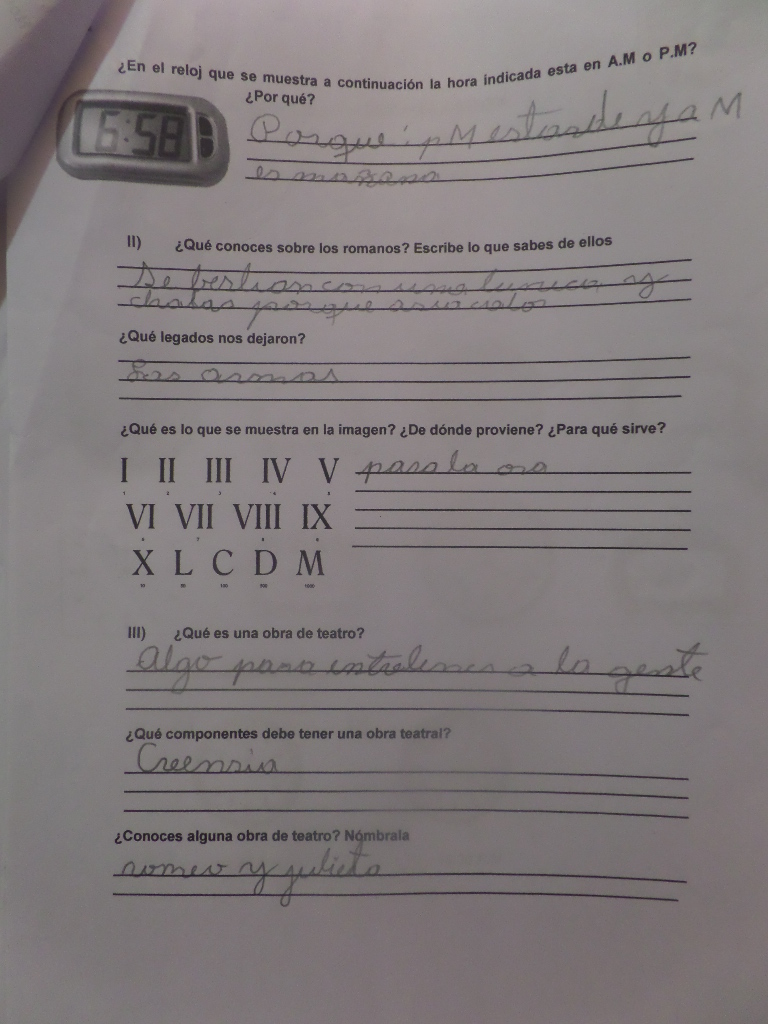 ¿En el reloj que se muestra a continuación la hora indicada esta en A.M o P.M?
¿Por qué?
6:58
Porque: pM es tarde y a M
es mañana
II) ¿Qué conoces sobre los romanos? Escribe lo que sabes de ellos
Se bestian con una tunica y
chalas porque
¿Qué legados nos dejaron?
Las armas
¿Qué es lo que se muestra en la imagen? ¿De dónde proviene? ¿Para qué sirve?
I II III IV V
para la ora
VI VII VIII IX
X L C D M
III) ¿Qué es una obra de teatro?
Algo para entretener a la gente
¿Qué componentes debe tener una obra teatral?
Creensia
¿Conoces alguna obra de teatro? Nómbrala
romeo y julieta